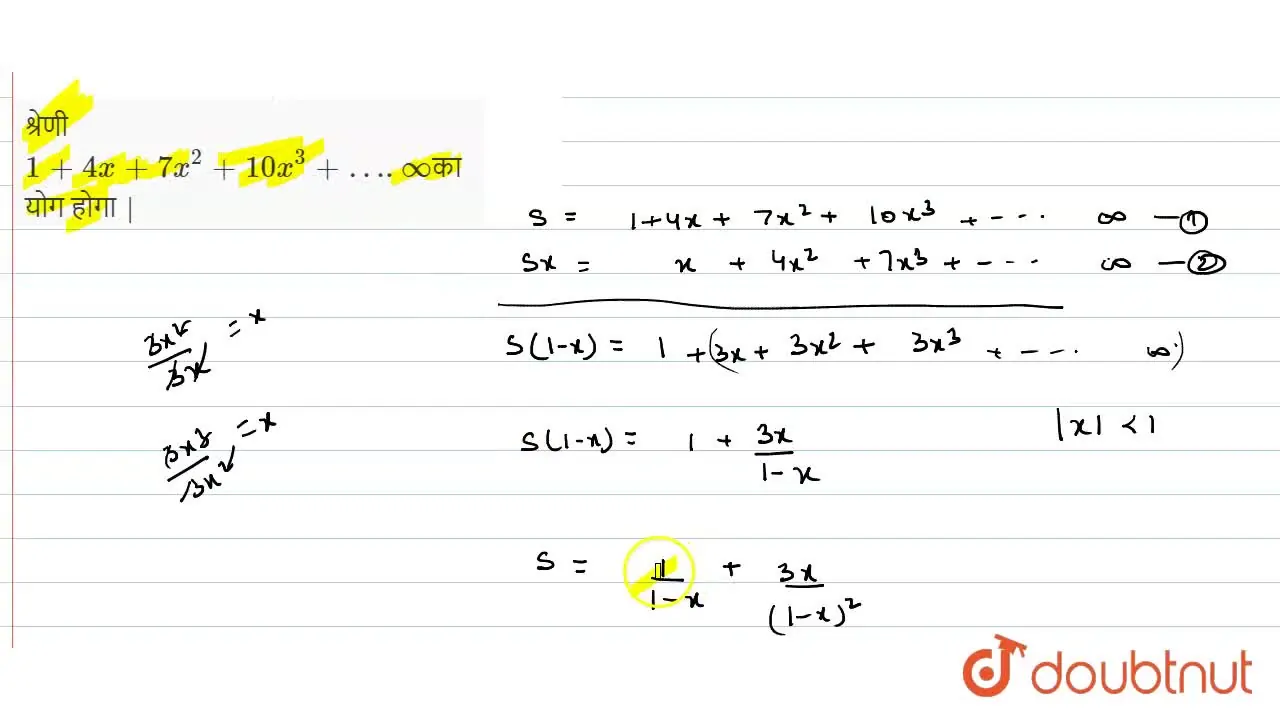 श्रेणी
1 + 4x + 7x² + 10x³ + …. ∞का
योग होगा |
S = 1+4x+ 7x²+ 10x³ +--- ∞ —①
Sx = x + 4x² +7x³ +--- ∞ —②
S(1-x) = 1 +(3x+ 3x²+ 3x³ +--- ∞)
3x²/3x = x
S(1-x) = 1 + 3x/1-x
|x| < 1
3x³/3x² = x
S = 1/1-x + 3x/(1-x)²
doubtnut